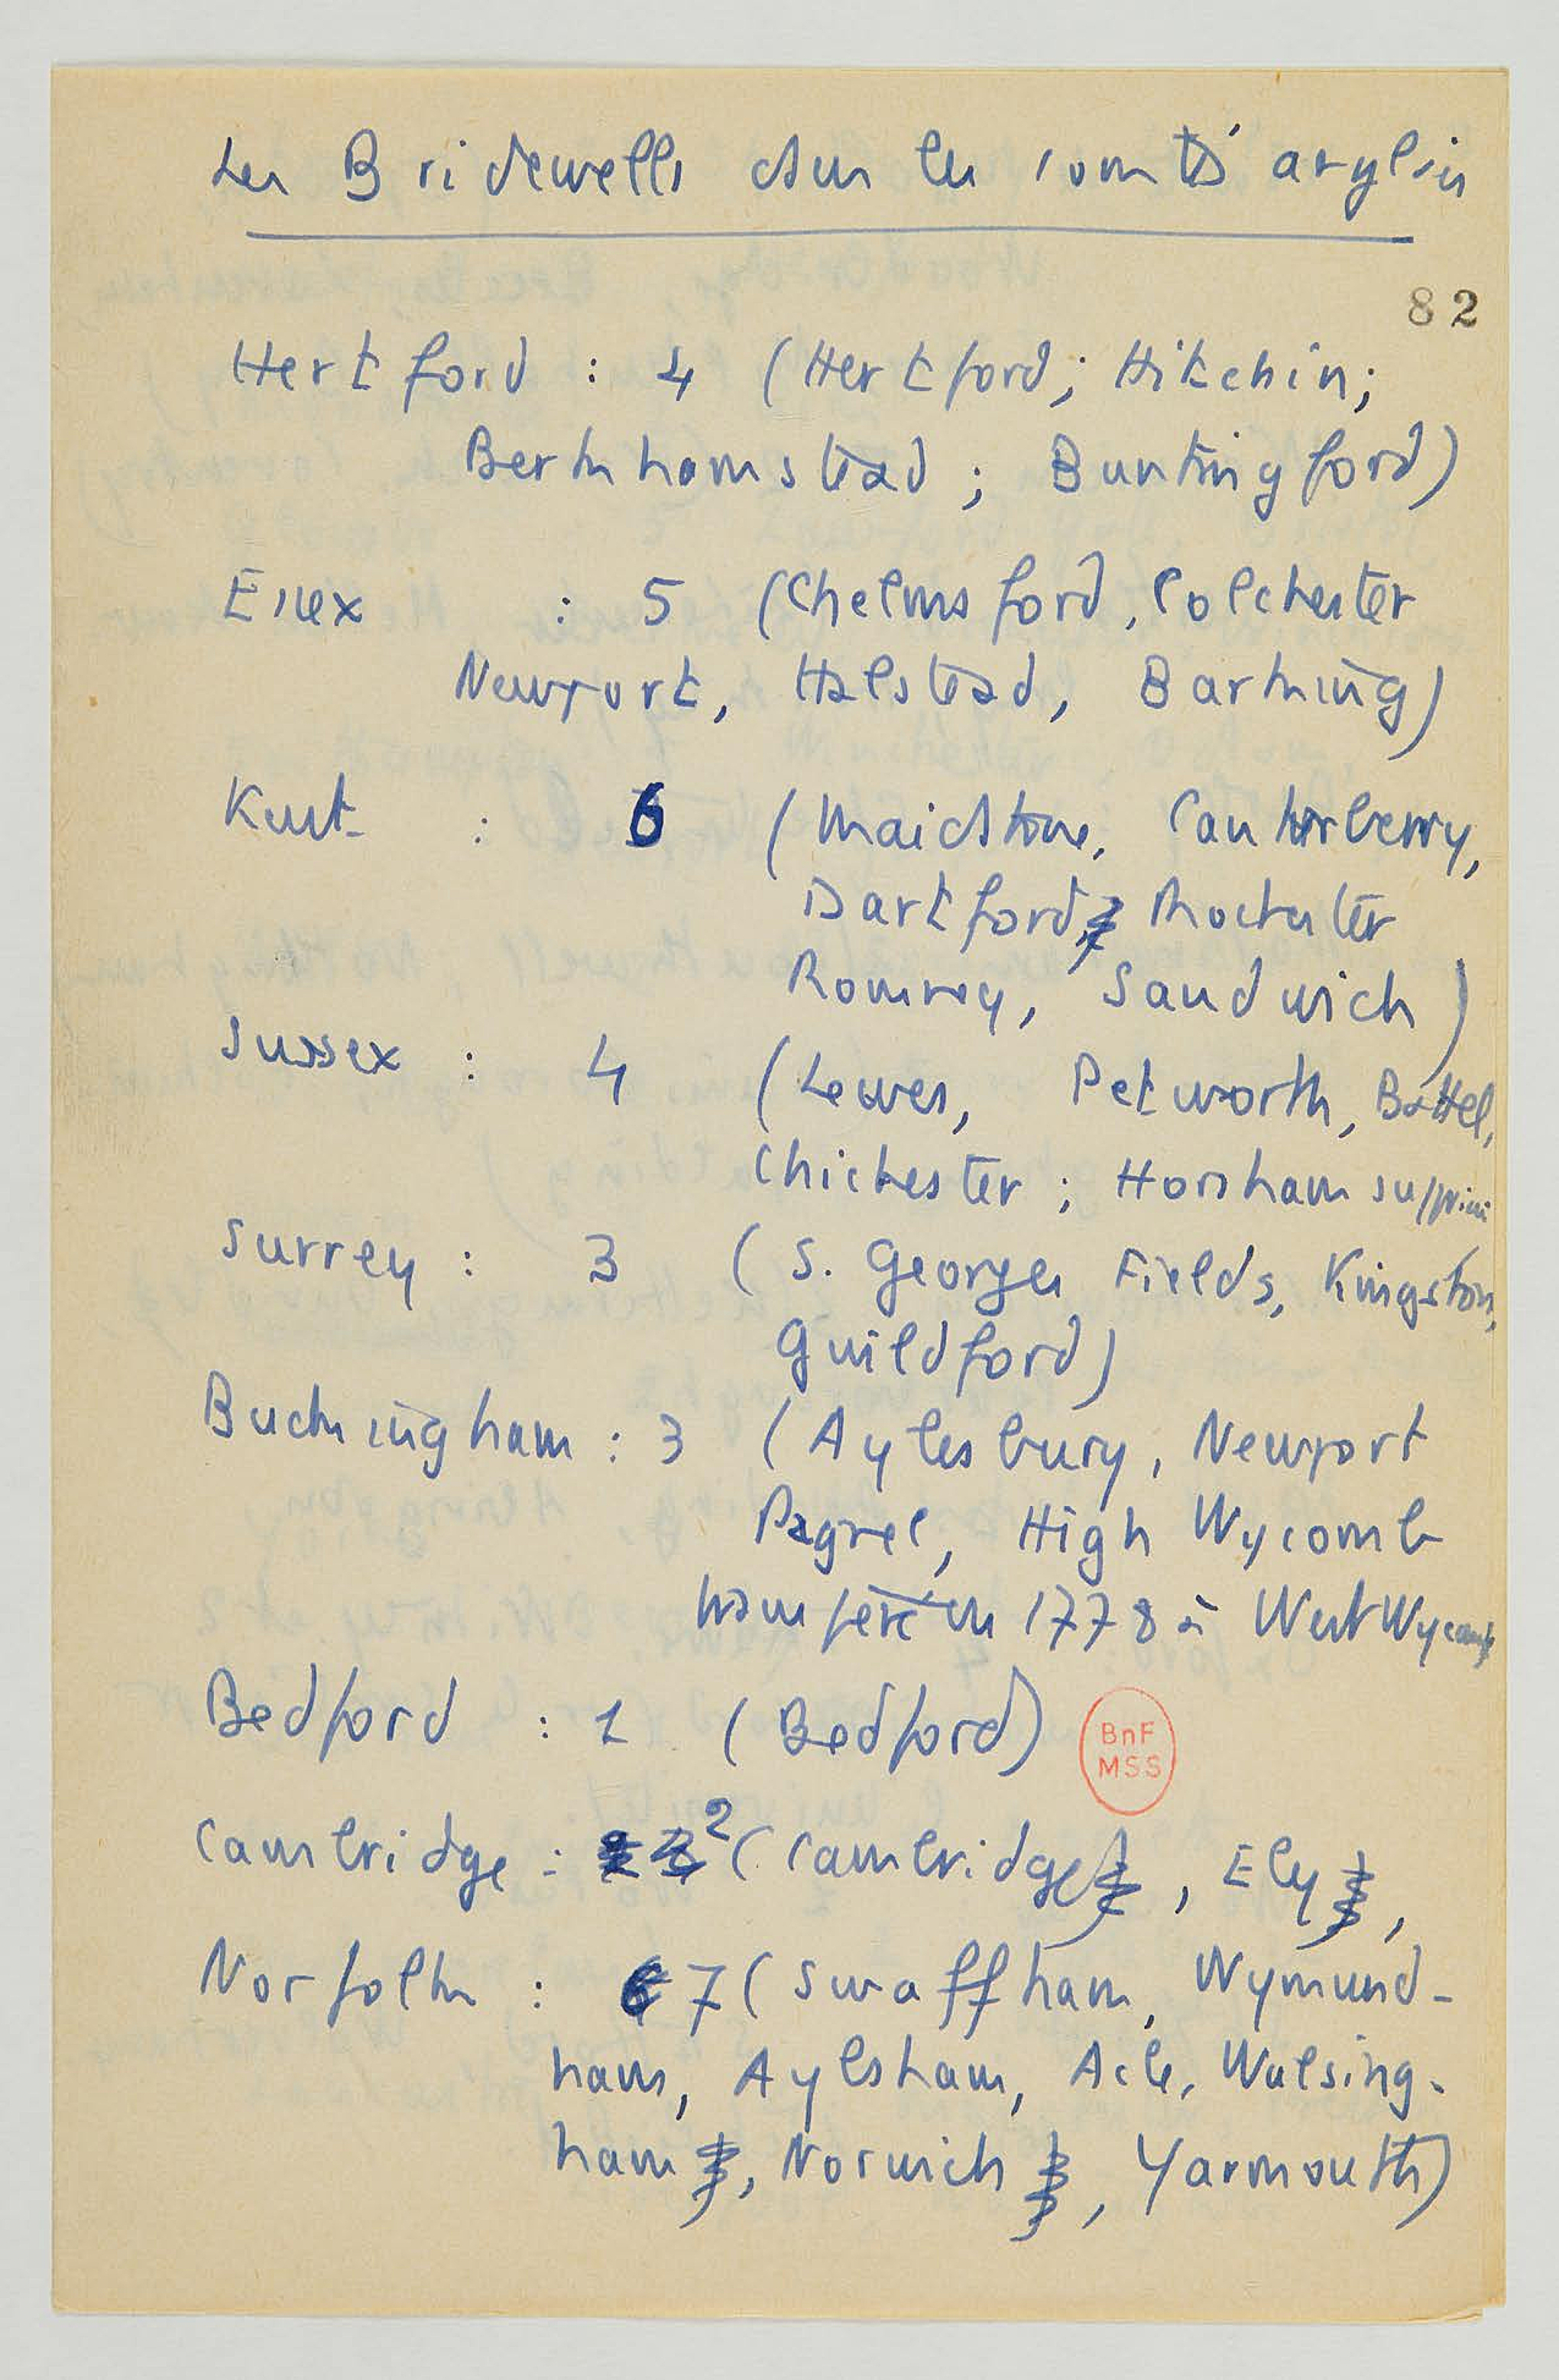 Les Bridewells dans les comtés anglais
82
Hertford : 4 (Hertford; Hitchin;
Berkhamstead ; Buntingford)
Essex : 5 (Chelmsford, Colchester
Newport, Halstead, Barking)
Kent : 6 (Maidstone, Canterberry,
Dartford, Rochester
Romney, Sandwich)
Sussex : 4 (Lewes, Petworth, Battel,
Chichester ; Horsham supprimé
Surrey : 3 (S. Georges Fields, Kingston,
Guildford)
Buckingham : 3 (Aylesbury, Newport
Pagnel, High Wycomb
transféré en 1778 à West Wycomb
Bedford : 1 (Bedford)
BnF
MSS
Cambridge : 2 (Cambridge, Ely,
Norfolk : 7 (Swaffham, Wymund-
ham, Aylsham, Acle, Walsing-
ham, Norwich, Yarmouth)